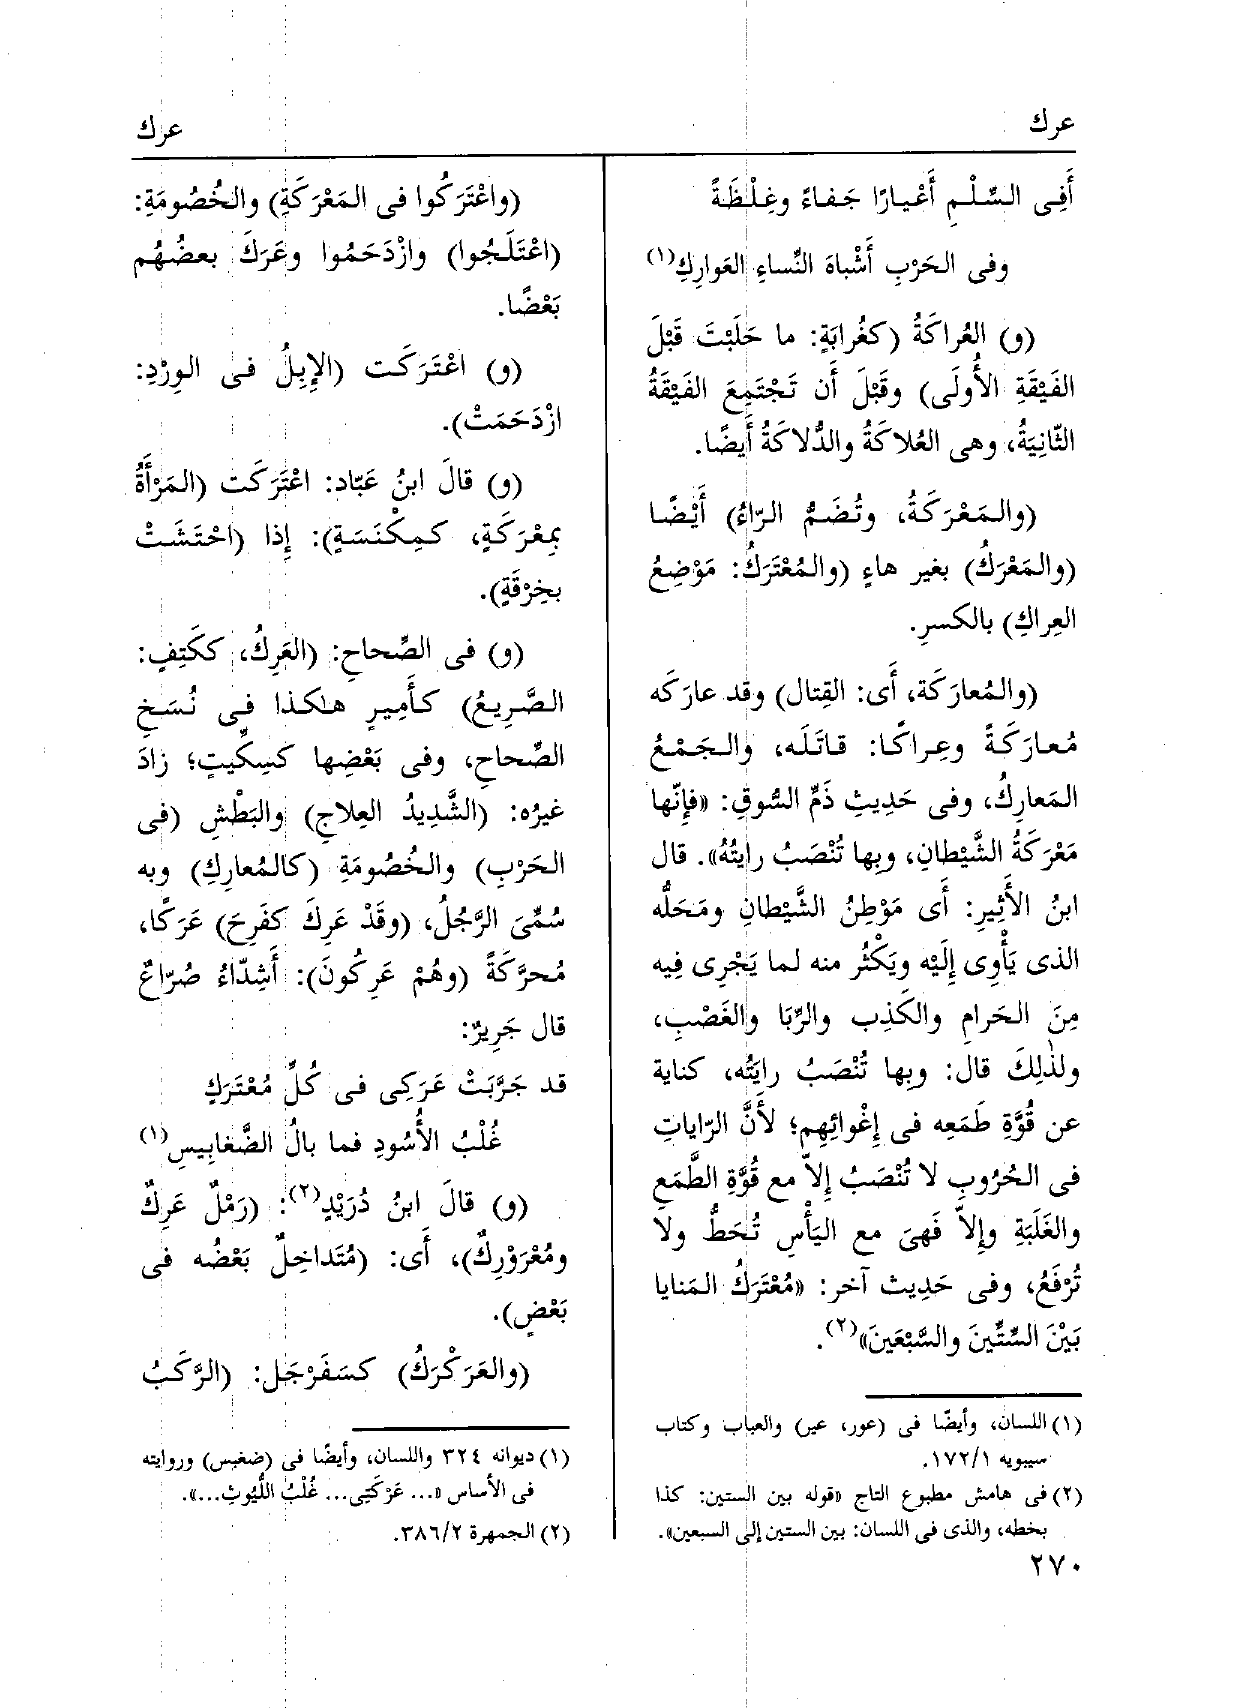 عرك
عرك
أَفِى السِّلْمِ أَعْيارًا جَفاءً وغِلْظَةً
وفى الحَرْبِ أَشْباهَ النِّساءِ العَوارِكِ(١)
(و) العُراكَةُ (كغُرابَةٍ: ما حَلَبْتَ قَبْلَ
الفَيْقَةِ الأُولَى) وقَبْلَ أَن تَجْتَمِعَ الفَيْقَةُ
الثّانِيَةُ، وهى العُلاكَةُ والدُّلاكَةُ أَيضًا.
(والمَعْرَكَةُ، وتُضَمُّ الرّاءُ) أَيْضًا
(والمَعْرَكُ) بغير هاءٍ (والمُعْتَرَكُ: مَوْضِعُ
العِراكِ) بالكسرِ.
(والمُعارَكَة، أَى: القِتال) وقد عارَكَه
مُعارَكَةً وعِراكًا: قاتَلَه، والجَمْعُ
المَعارِكُ، وفى حَدِيثِ ذَمِّ السُّوقِ: «فإِنّها
مَعْرَكَةُ الشَّيْطانِ، وبِها تُنْصَبُ رايَتُهُ». قال
ابنُ الأَثِيرِ: أَى مَوْطِنُ الشَّيْطانِ ومَحَلُّه
الذى يَأْوِى إِلَيْه ويَكْثُر منه لما يَجْرِى فِيه
مِنَ الحَرامِ والكَذِب والرِّبَا والغَصْبِ،
ولذٰلِكَ قال: وبِها تُنْصَبُ رايَتُه، كناية
عن قُوَّةِ طَمَعِه فى إِغْوائِهِم؛ لأَنَّ الرّاياتِ
فى الحُرُوبِ لا تُنْصَبُ إِلاّ مع قُوَّةِ الطَّمَعِ
والغَلَبَةِ وإِلاّ فَهِىَ مع اليَأْسِ تُحَطُّ ولا
تُرْفَعُ، وفى حَدِيث آخر: «مُعْتَرَكُ المَنايا
بَيْنَ السِّتِّينَ والسَّبْعَينَ»(٢).
(١) اللسان، وأيضًا فى (عور، عير) والعباب وكتاب
سيبويه ١٧٢/١.
(٢) فى هامش مطبوع التاج «قوله بين الستين: كذا
بخطه، والذى فى اللسان: بين الستين إلى السبعين».
٢٧٠
(واعْتَرَكُوا فى المَعْرَكَةِ) والخُصُومَةِ:
(اعْتَلَجُوا) وازْدَحَمُوا وعَرَكَ بعضُهُم
بَعْضًا.
(و) اعْتَرَكَت (الإِبِلُ فى الوِرْدِ:
ازْدَحَمَتْ).
(و) قالَ ابنُ عَبّاد: اعْتَرَكَت (المَرْأَةُ
بمِعْرَكَةٍ، كمِكْنَسَةٍ): إِذا (احْتَشَتْ
بخِرْقَةٍ).
(و) فى الصِّحاحِ: (العَرِكُ، ككَتِفٍ:
الصَّرِيعُ) كأَمِيرٍ هٰكذا فى نُسَخِ
الصِّحاحِ، وفى بَعْضِها كسِكِّيتٍ؛ زادَ
غيرُه: (الشَّدِيدُ العِلاجِ) والبَطْشِ (فى
الحَرْبِ) والخُصُومَةِ (كالمُعارِكِ) وبه
سُمِّىَ الرَّجُلُ، (وقَدْ عَرِكَ كفَرِحَ) عَرَكًا،
مُحرَّكَةً (وهُمْ عَرِكُونَ): أَشِدّاءُ صُرّاعٌ
قال جَرِيرٌ:
قد جَرَّبَتْ عَرَكِى فى كُلِّ مُعْتَرَكٍ
غُلْبُ الأُسُودِ فما بالُ الضَّغابِيسِ(١)
(و) قالَ ابنُ دُرَيْدٍ(٢): (رَمْلٌ عَرِكٌ
ومُعْرَوْرِكٌ)، أَى: (مُتَداخِلٌ بَعْضُه فى
بَعْضٍ).
(والعَرَكْرَكُ) كسَفَرْجَل: (الرَّكَبُ
(١) ديوانه ٣٢٤ واللسان، وأيضًا فى (ضغبس) وروايته
فى الأساس «... عَرْكَتِى... غُلْبُ اللُّيوثِ...».
(٢) الجمهرة ٣٨٦/٢.